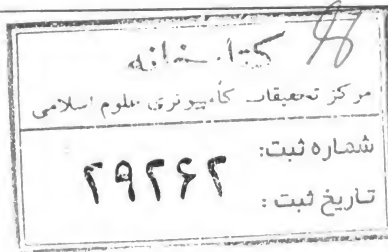 کتابخانه
مرکز تحقیقات کامپیوتری علوم اسلامی
شماره ثبت: ۲۹۲۶۲
تاریخ ثبت :